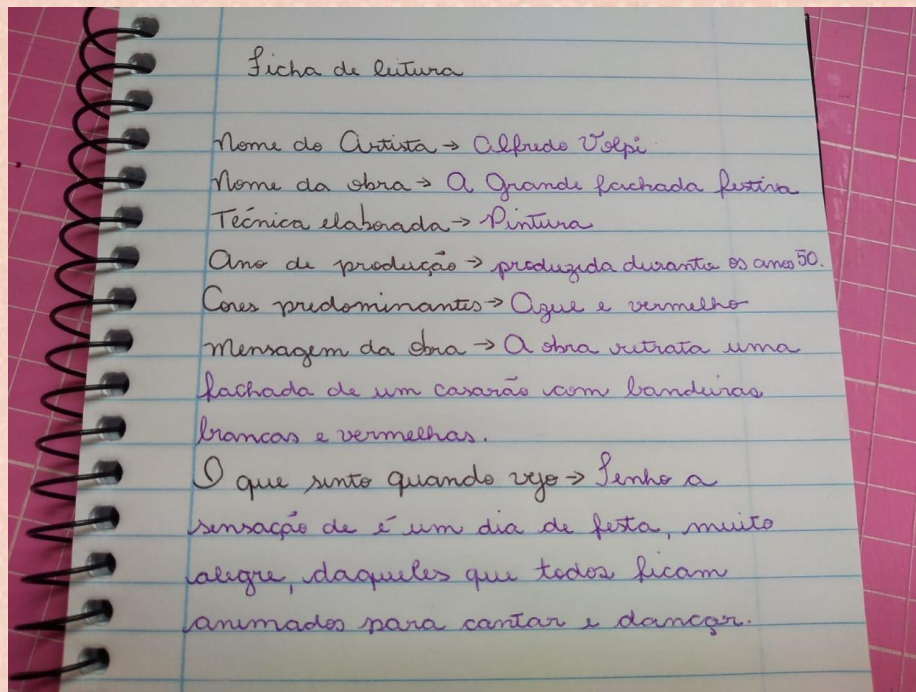 Ficha de leitura
Nome do Artista → Alfredo Volpi
Nome da obra → A Grande fachada festiva
Técnica elaborada → Pintura
Ano de produção → produzida durante os anos 50.
Cores predominantes → Azul e vermelho
Mensagem da obra → A obra retrata uma
fachada de um casarão com bandeiras
brancas e vermelhas.
O que sinto quando vejo → Tenho a
sensação de é um dia de festa, muito
alegre, daqueles que todos ficam
animados para cantar e dançar.